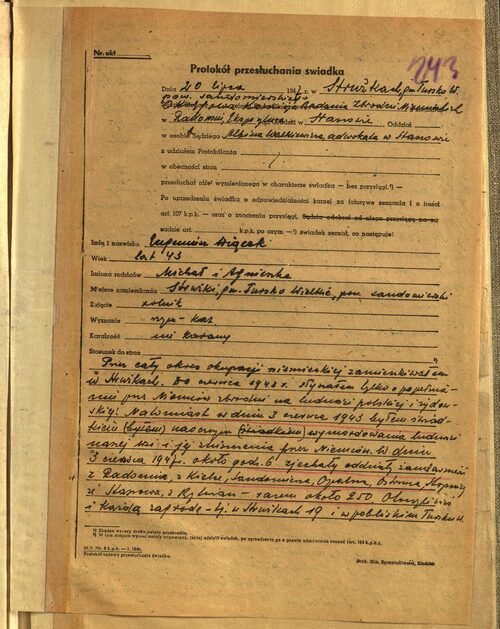 243
Nr. akt
Protokół przesłuchania świadka
Dnia 20 lipca 1947 r. w Strużkach, gm. Tursko W.
pow. sandomierskiego
Okręgowa Komisja Badania Zbrodni Niemieckich
w Radomiu, Ekspozytura w Staszowie Oddział
w osobie Sędziego Albina Walkiewicza adwokata w Staszowie
z udziałem Protokólanta
w obecności stron
przesłuchał niżej wymienionego w charakterze świadka — bez przysięgi.¹) —
Po uprzedzeniu świadka o odpowiedzialności karnej za fałszywe zeznania i o treści
art. 107 k.p.k. — oraz o znaczeniu przysięgi, Sędzia odebrał od niego przysięgę na za-
sadzie art. k.p.k., po czym —¹) świadek zeznał, co następuje:
Imię i nazwisko Eugeniusz
Wiek lat 43
Imiona rodziców Michał i Agnieszka
Miejsce zamieszkania Strużki, gm. Tursko Wielkie, pow. sandomierski
Zajęcie rolnik
Wyznanie rzym-kat
Karalność nie karany
Stosunek do stron
Przez cały okres okupacji niemieckiej zamieszkiwałem
w Strużkach. Do czerwca 1943 r. słyszałem tylko o popełnia-
niu przez Niemców zbrodni na ludności polskiej i żydow-
skiej. Natomiast w dniu 3 czerwca 1943 byłem świad-
kiem (byłem) naocznym (świadkiem) wymordowania ludności
naszej wsi i jej zniszczenia przez Niemców. W dniu
3 czerwca 194 r. około godz. 6 zjechały oddziały żandarmerii
z Radomia, z Kielc, Sandomierza, Opatowa, Ostrowca, Stopnicy
ze Staszowa, z Rytwian – razem około 250. Otoczyli wieś
i każdą zagrodę – tj. w Strużkach 19 i w pobliskim Tursku
¹) Zbędne wyrazy druku należy przekreślić.
²) W tym miejscu wpisać należy odpowiedź, jakiej udzielił świadek, po uprzedzeniu go o prawie odmówienia zeznań (art. 104 k.p.k.).
M. S. Nr. 8 k.p.k. — I. 1946.
Protokół sądowy przesłuchania świadka.
Druk. Min. Sprawiedliwości,